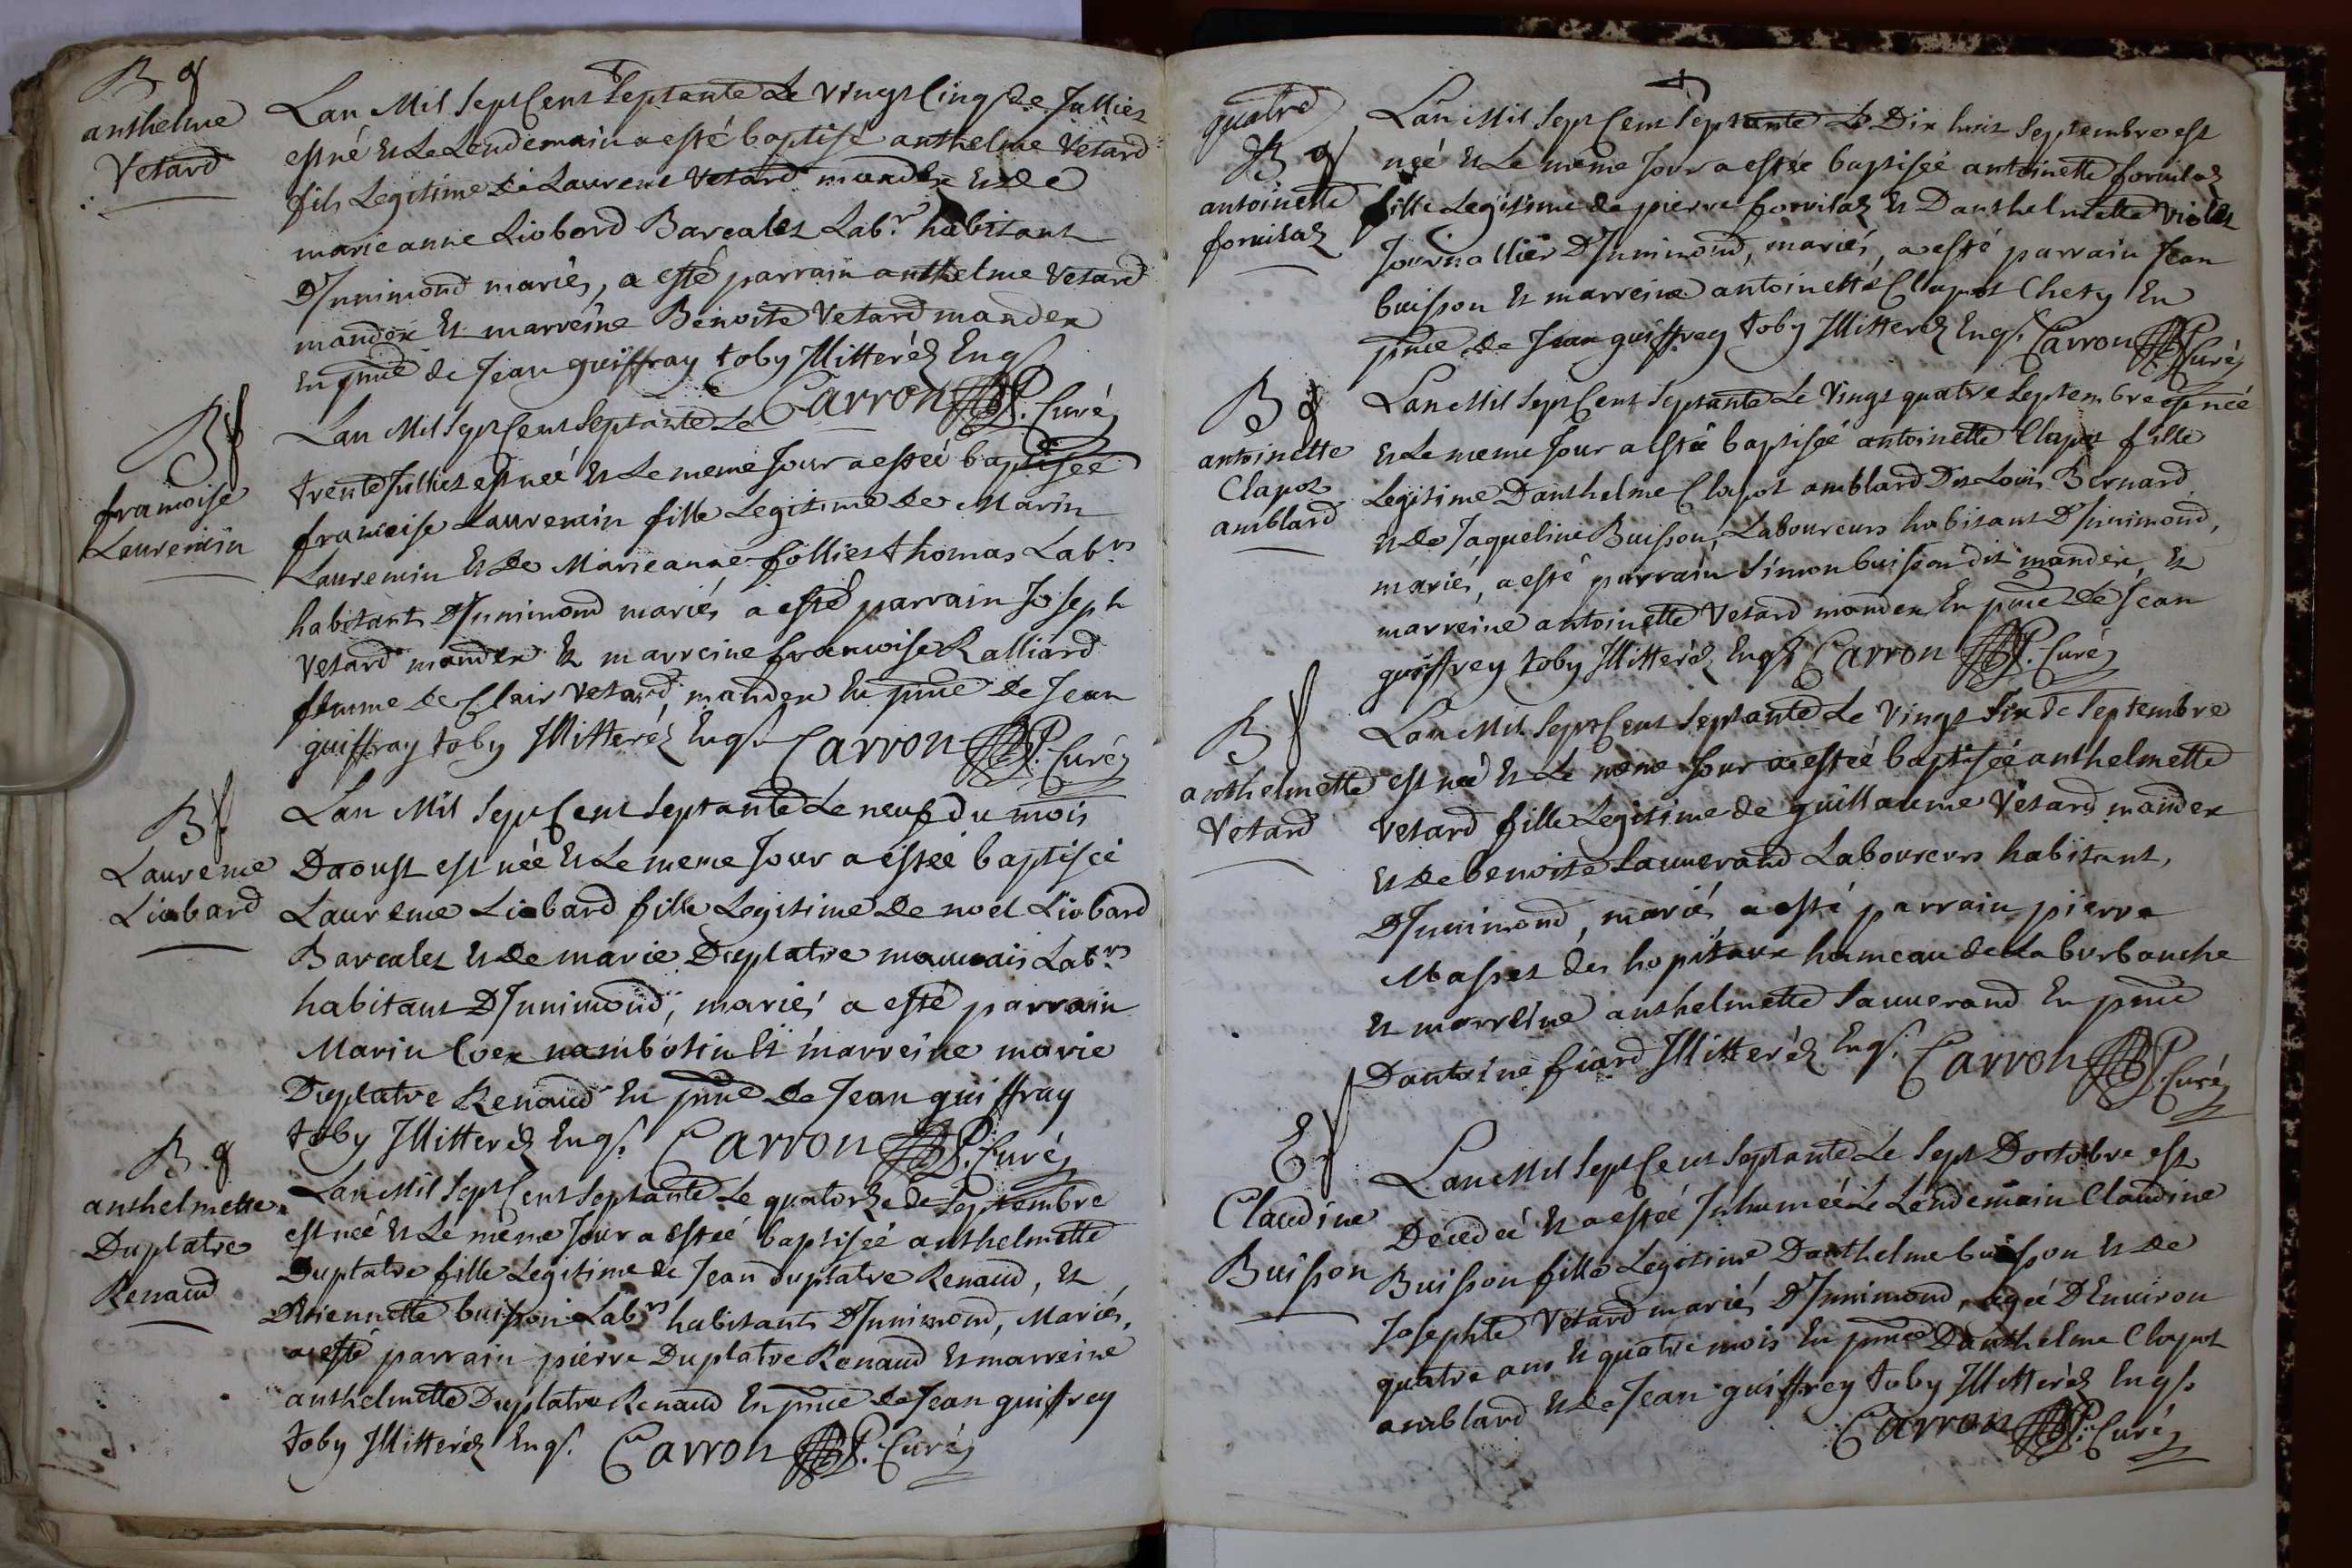 B g
anthelme
Vetard
Lan Mil Sept Cent Septante Le vingt Cinq de Julliet
est né et Le Lendemain a esté baptisé anthelme Vetard
fils Legitime de Laurent Vetard mander et de
marie anne Liobard Barcalet Lab.rs habitant
D'Innimond mariés, a esté parrain anthelme Vetard
mander et marreine Benoite Vetard mander
en pnce de Jean guiffray toby Illitteréz Enq.s
Carron P. Curé
B f
francoise
Lauremin
Lan Mil Sept Cent Septante Le
trente Julliet est née et Le meme Jour a estée baptisée
francoise Lauremin fille Legitime de Marin
Lauremin et de Marieanne folliet thomas Lab.rs
habitants D'Innimond mariés a esté parrain Joseph
Vetard mander et marreine francoise Ralliard
femme de Clair Vetard mander En pnce de Jean
guiffray toby Illitteréz Enq.s Carron P. Curé
B f
Laurence
Liobard
Lan Mil Sept Cent Septante Le neuf du mois
Daoust est née et Le meme Jour a estée baptisée
Laurence Liobard fille Legitime de noel Liobard
Barcalet et de marie Duplatre mauvais Lab.rs
habitans D'Innimond, mariés a esté parrain
Marin Coex nambotin et marreine marie
Duplatre Renaud En pnce de Jean guiffray
toby Illitteréz Enq.s Carron P. Curé
B. g
anthelmette
Duplatre
Renaud
Lan Mil Sept Cent Septante Le quatorze de Septembre
est née et Le meme Jour a estée baptisée anthelmette
Duplatre fille Legitime de Jean duplatre Renaud, et
Détiennette buisson Lab.rs habitants D'Innimond, Mariés,
a esté parrain pierre Duplatre Renaud et marreine
anthelmette Duplatre Renaud En pnce de Jean guiffrey
toby Illitteréz Enq.s Carron P. Curé
quatre
B g
antoinette
fornilaz
Lan Mil Sept Cent Septante Le Dix huit Septembre est
née et Le même Jour a estée baptisée antoinette fornilaz
fille Legitime de pierre fornilaz et Danthelmette Violet
Journallier D'Innimond, mariés, a esté parrain Jean
buisson et marreine antoinette Clapot Chety En
pnce de Jean guiffrey toby Illitteréz Enq.s Carron P. Curé
B g
antoinette
Clapot
amblard
Lan Mil Sept Cent Septante Le Vingt quatre Septembre est née
et Le meme Jour a estée baptisée antoinette Clapot fille
Legitime Danthelme Clapot amblard Dit Louis Bernard
et de Jaqueline Buisson, Laboureurs habitant D'Innimond,
mariés, a esté parrain Simon buisson dit mander, et
marreine antoinette Vetard mander En pnce de Jean
guiffrey toby Illitteréz Enq.s Carron P. Curé
B f
anthelmette
Vetard
Lan Mil Sept Cent Septante Le Vingt Six de Septembre
est née et Le même Jour a estée baptisée anthelmette
Vetard fille Legitime de guillaume Vetard mander
et de benoite Sauverand Laboureurs habitant,
D'Innimond, mariés a esté parrain pierre
Masset des hopitaux hameau de La burbanche
et marreine anthelmette Sauverand En pnce
Dantoine fiard Illitteréz Enq.s Carron P. Curé
E f
Claudine
Buisson
Lan Mil Sept Cent Septante Le Sept Doctobre est
Decedée et a estée Inhumée Le Lendemain Claudine
Buisson fille Legitime Danthelme buisson et de
Josephte Vetard mariés D'Innimond, agée D'Environ
quatre ans et quatre mois En pnce Danthelme Clapot
amblard et de Jean guiffrey toby Illitteréz Enq.s
Carron P. Curé